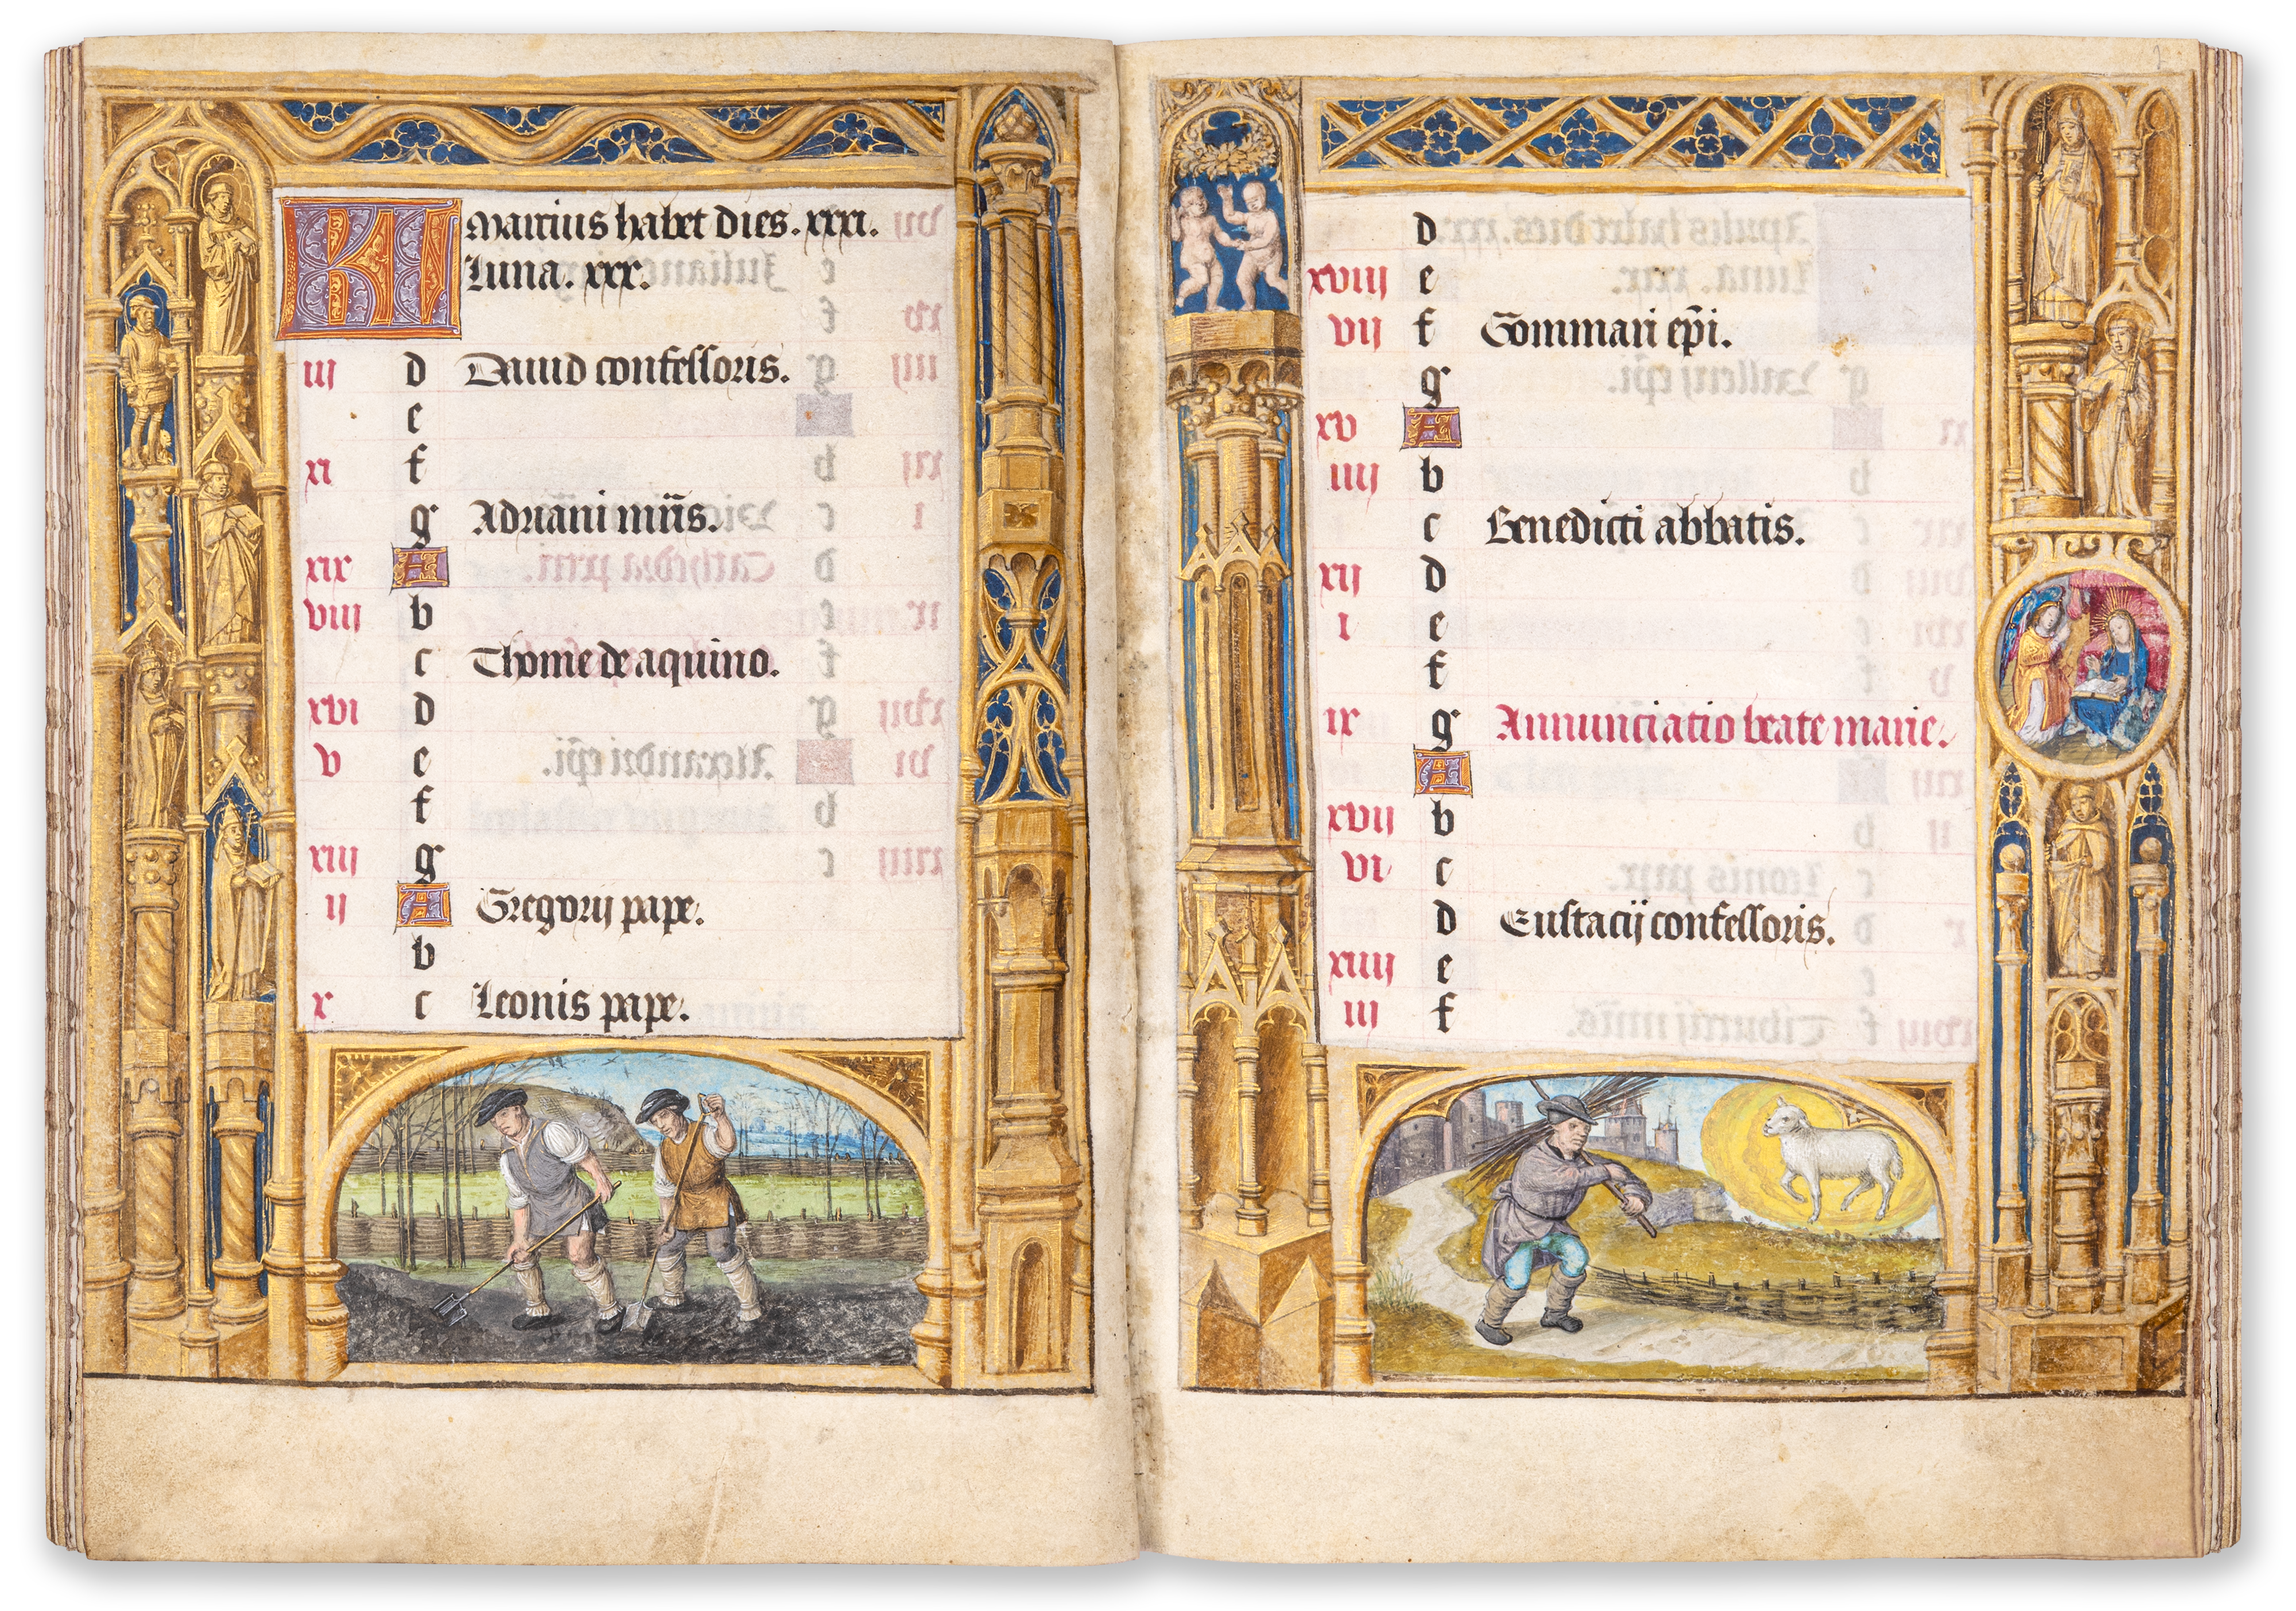 KL Marcius habet dies. xxxi.
Luna. xxx.
iii d Dauid confessoris.
e
xi f
g Adriani mr̄is.
xix A
viii b
c Thome de aquino.
xvi d
v e
f
xiii g
ii A Gregorij pape.
b
x c Leonis pape.
d
xviii e
vii f Gommari ep̄i.
g
xv A
iiii b
c Benedicti abbatis.
xii d
i e
f
ix g Annunciatio beate marie.
A
xvii b
vi c
d Eustacij confessoris.
xiiii e
iii f